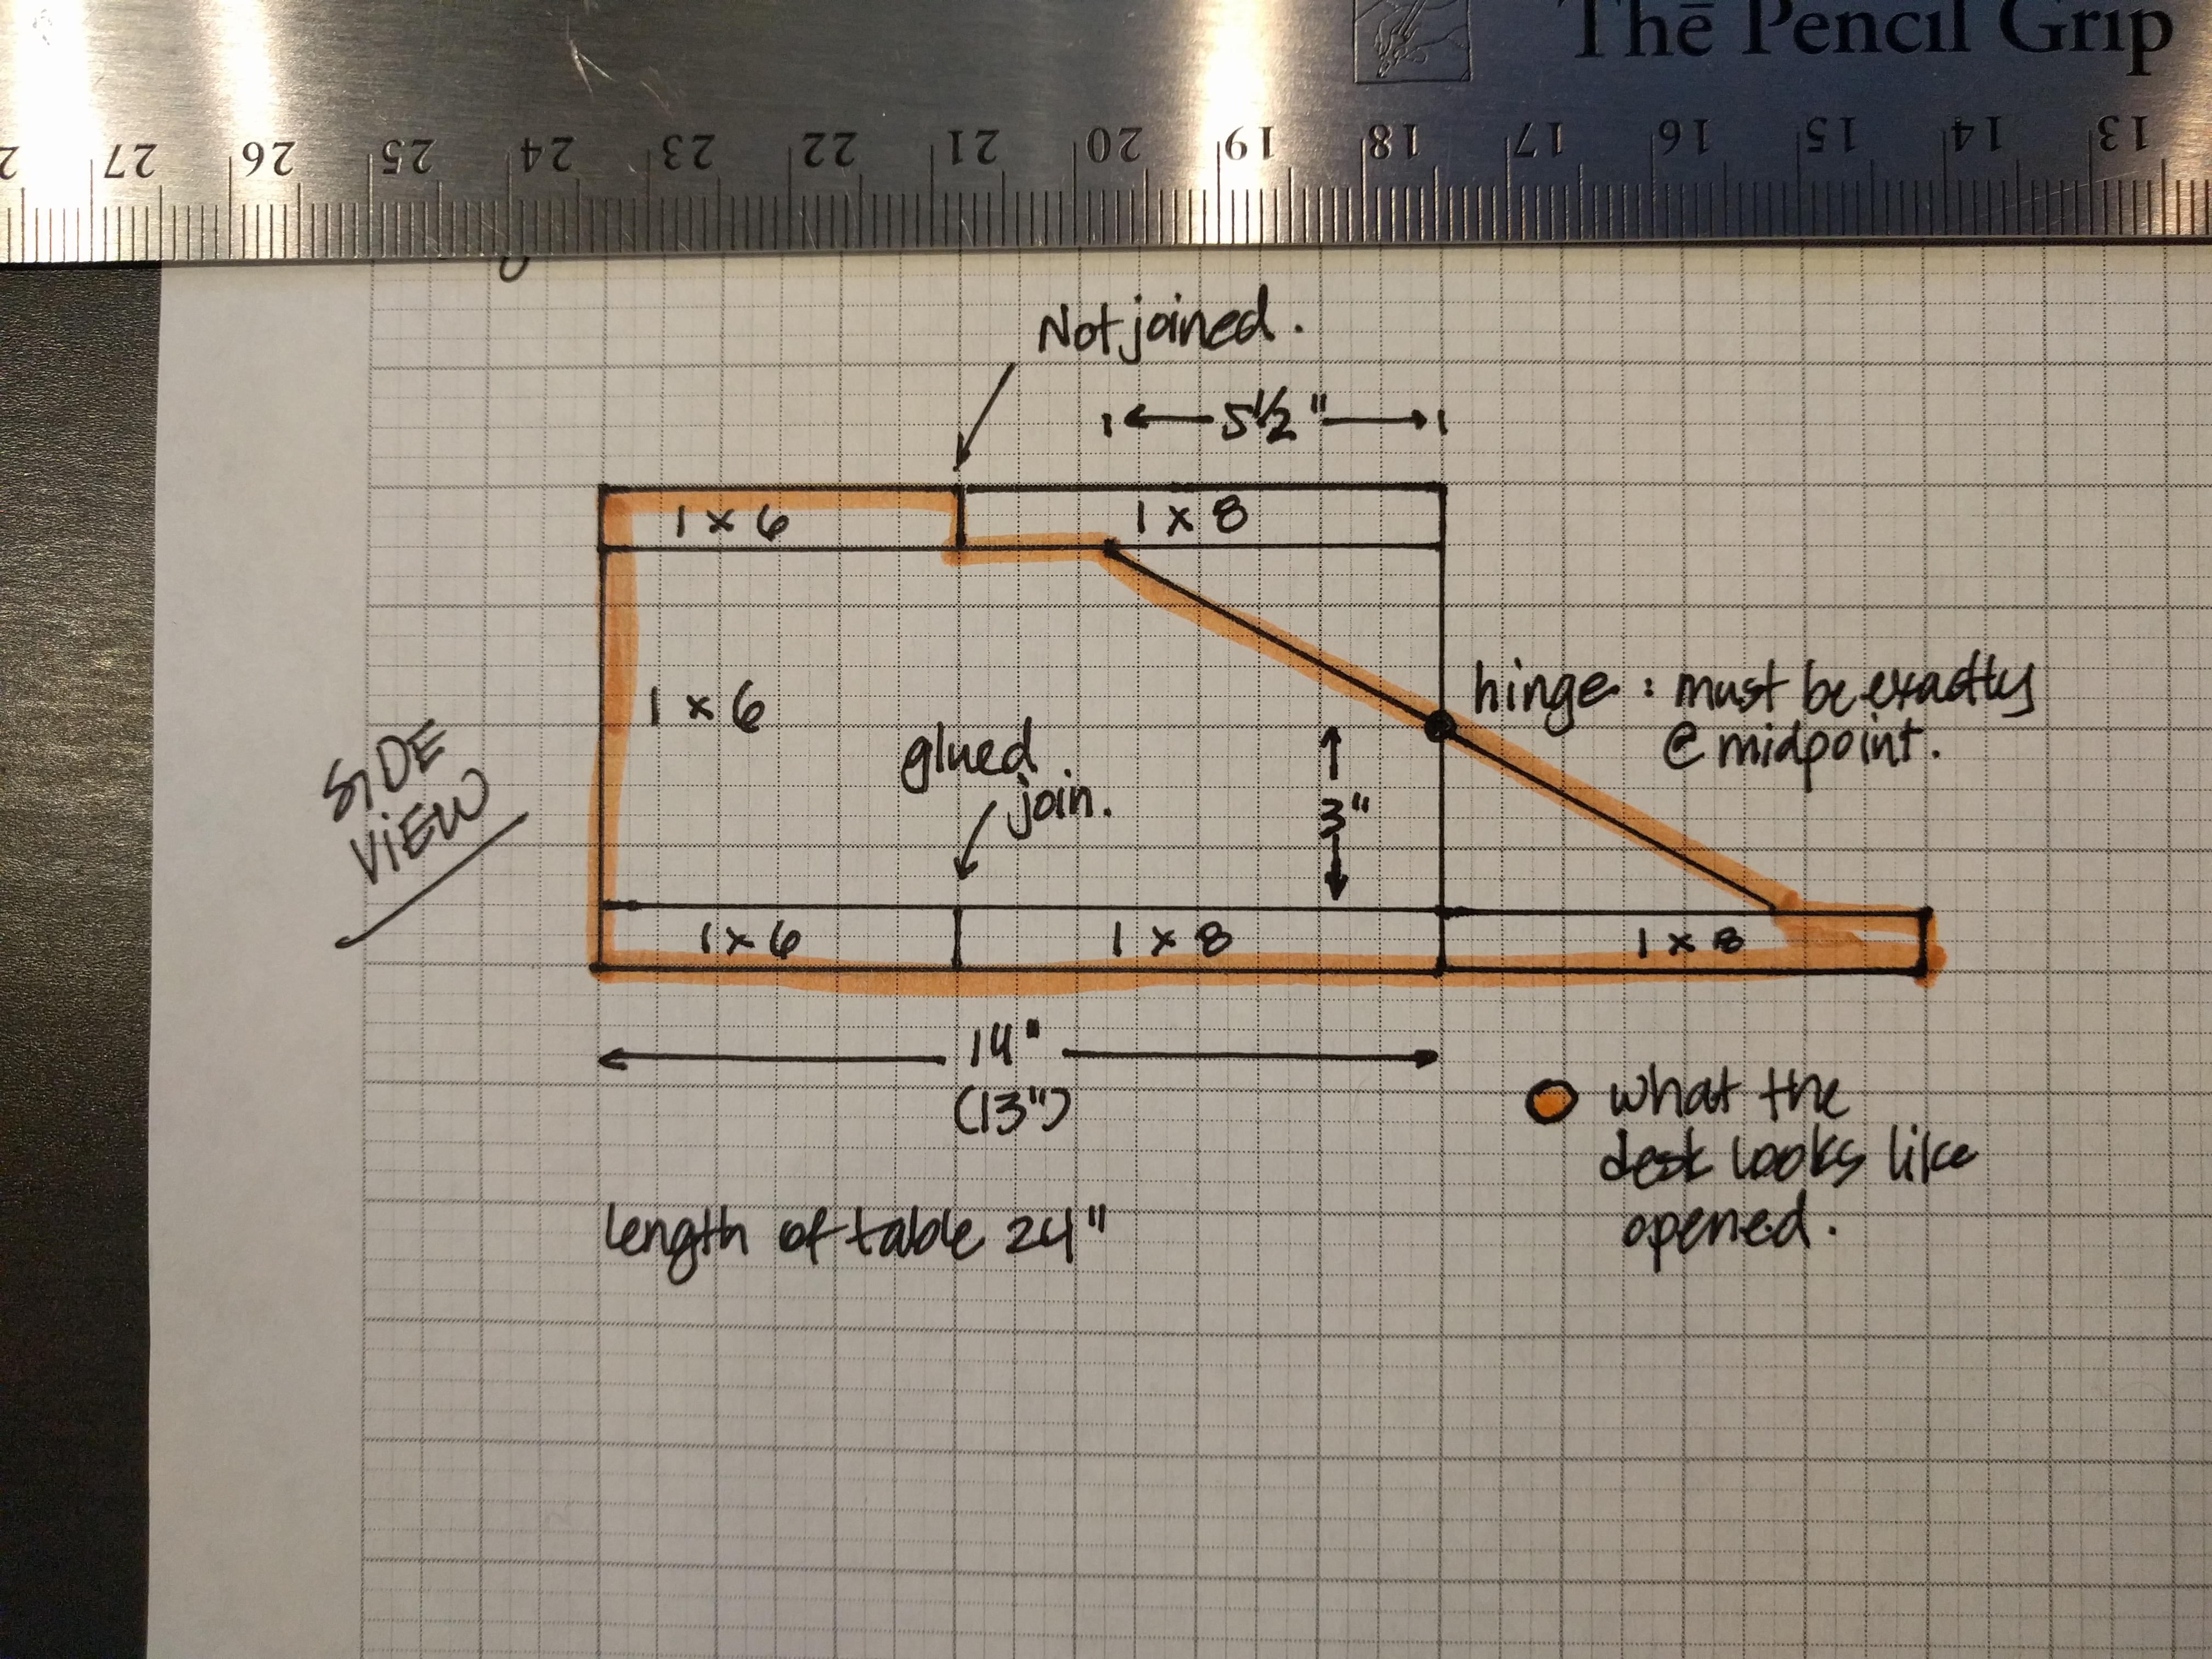 The Pencil Grip
27 26 25 24 23 22 21 20 19 18 17 16 15 14 13
Not joined.
5 1/2"
1 x 6
1 x 8
hinge : must be exactly
@ midpoint.
1 x 6
glued
join.
3"
SIDE
VIEW
1 x 6
1 x 8
1 x 8
14"
(13")
what the
desk looks like
opened.
length of table 24"